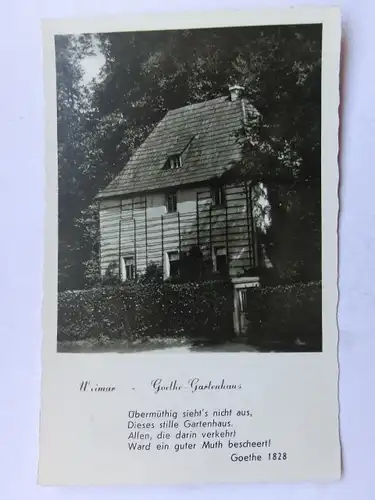 Weimar - Goethe-Gartenhaus
Übermüthig sieht's nicht aus,
Dieses stille Gartenhaus.
Allen, die darin verkehrt!
Ward ein guter Muth bescheert!
Goethe 1828